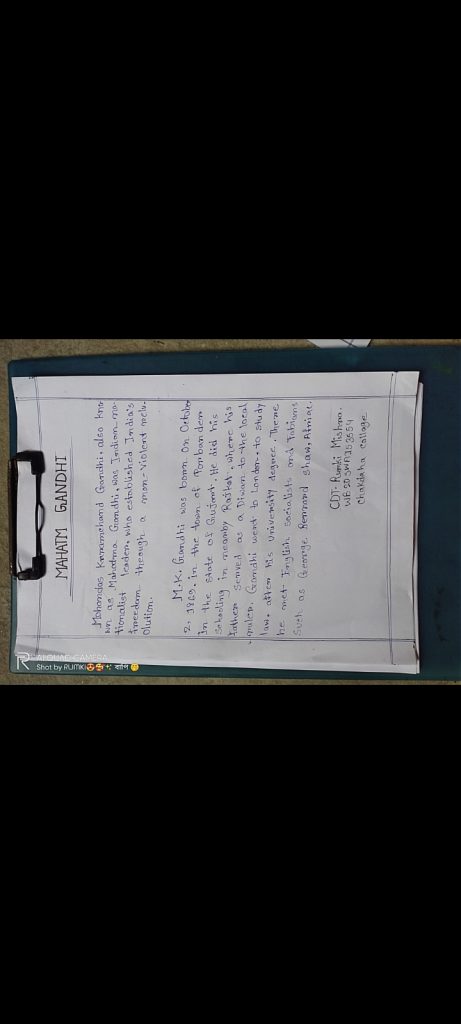 MAHATM GANDHI
Mohamdas Knramchand Gandhi, also kno
wn as Mahatma Gandhi, was Indian na-
tionalist leader, who established India's
freedom through a non-violend
olution.
M.K. Gandhi was born on October
2, 1869. in the town of Porbandem
In the State of Gujarat. He did his
Schooling in nearby Rajkot, where his
father Served as a Diwan to the local
ruler. Gandhi went to London to study
law. after his University degree. There
he met English Socialists and Fabians
Such as George Bernard Shaw.
CDT: Rumki Mishra.
Chakdaha college
AI QUAD CAMERA
Shot by RUMKI😍🥰✨ বাপি 😋